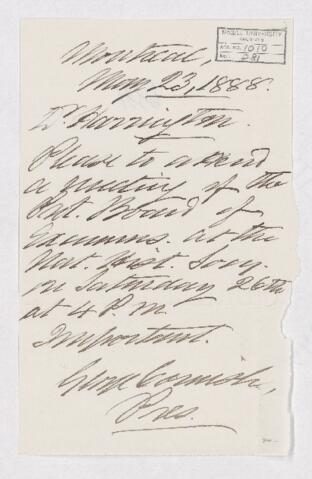 McGILL UNIVERSITY
ACC. NO. 1070
Montreal,
May 23, 1888.
Dr Harrington.
Please to attend
a meeting of the
Prot. Board of
Examiners. at the
Nat. Hist. Socy.
on Saturday 26th
at 4 P.M.
Important.
George Cornish,
Pres.